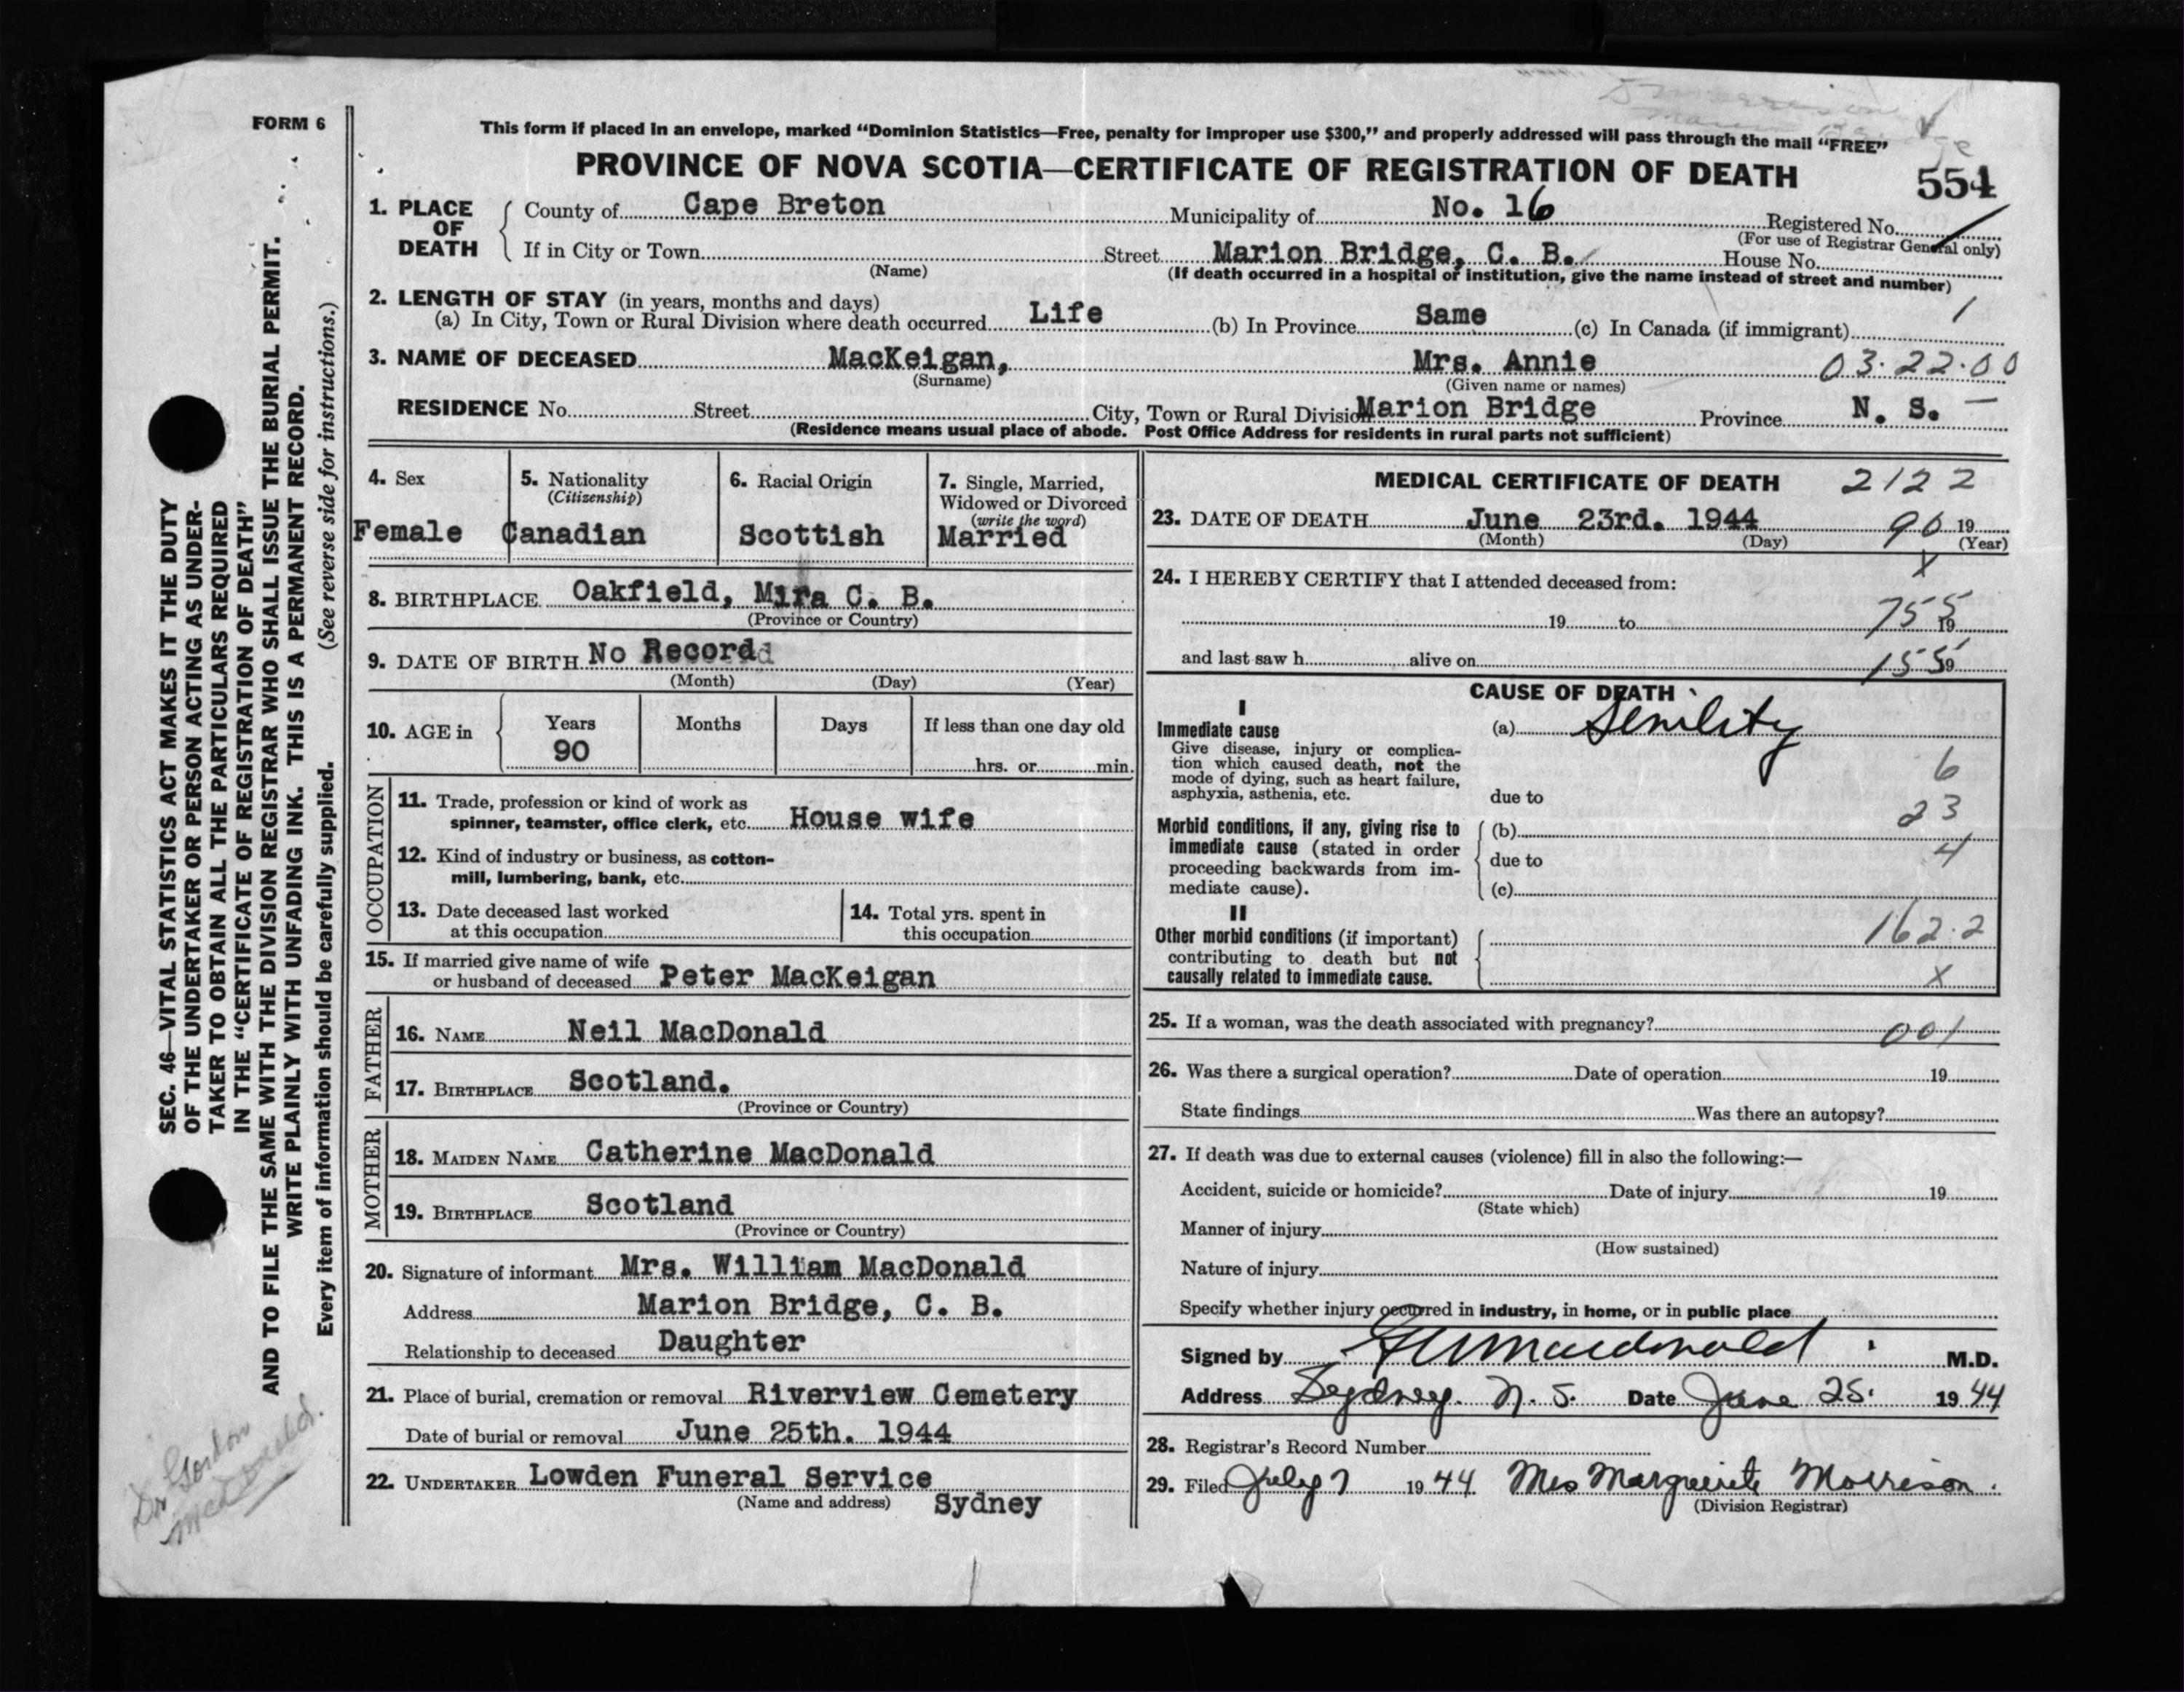 FORM 6
This form if placed in an envelope, marked “Dominion Statistics—Free, penalty for improper use $300,” and properly addressed will pass through the mail “FREE”
PROVINCE OF NOVA SCOTIA—CERTIFICATE OF REGISTRATION OF DEATH
554
1. PLACE OF DEATH
County of Cape Breton Municipality of No. 16 Registered No.
(For use of Registrar General only)
If in City or Town Street Marion Bridge, C. B. House No.
(Name) (If death occurred in a hospital or institution, give the name instead of street and number)
2. LENGTH OF STAY (in years, months and days)
(a) In City, Town or Rural Division where death occurred Life (b) In Province Same (c) In Canada (if immigrant) 1
3. NAME OF DECEASED MacKeigan, Mrs. Annie 03.22.00
(Surname) (Given name or names)
RESIDENCE No. Street City, Town or Rural Division Marion Bridge Province N. S. —
(Residence means usual place of abode. Post Office Address for residents in rural parts not sufficient)
4. Sex
Female
5. Nationality
(Citizenship)
Canadian
6. Racial Origin
Scottish
7. Single, Married,
Widowed or Divorced
(write the word)
Married
8. BIRTHPLACE Oakfield, Mira C. B.
(Province or Country)
9. DATE OF BIRTH No Record
(Month) (Day) (Year)
10. AGE in Years Months Days If less than one day old
90 hrs. or min.
OCCUPATION
11. Trade, profession or kind of work as
spinner, teamster, office clerk, etc. House wife
12. Kind of industry or business, as cotton-
mill, lumbering, bank, etc.
13. Date deceased last worked
at this occupation
14. Total yrs. spent in
this occupation
15. If married give name of wife
or husband of deceased Peter MacKeigan
FATHER
16. NAME Neil MacDonald
17. BIRTHPLACE Scotland.
(Province or Country)
MOTHER
18. MAIDEN NAME Catherine MacDonald
19. BIRTHPLACE Scotland
(Province or Country)
20. Signature of informant Mrs. William MacDonald
Address Marion Bridge, C. B.
Relationship to deceased Daughter
21. Place of burial, cremation or removal Riverview Cemetery
Date of burial or removal June 25th. 1944
22. UNDERTAKER Lowden Funeral Service
(Name and address) Sydney
MEDICAL CERTIFICATE OF DEATH 2122
23. DATE OF DEATH June 23rd. 1944 90 19
(Month) (Day) (Year)
x
24. I HEREBY CERTIFY that I attended deceased from:
19 to 755 19
and last saw h alive on 155 19
CAUSE OF DEATH
I
Immediate cause (a) Senility
Give disease, injury or complica-
tion which caused death, not the
mode of dying, such as heart failure,
asphyxia, asthenia, etc.
6
due to
23
Morbid conditions, if any, giving rise to (b)
immediate cause (stated in order due to 4
proceeding backwards from im-
mediate cause). (c)
II
162.2
Other morbid conditions (if important)
contributing to death but not
causally related to immediate cause. x
25. If a woman, was the death associated with pregnancy? 001
26. Was there a surgical operation? Date of operation 19
State findings Was there an autopsy?
27. If death was due to external causes (violence) fill in also the following:—
Accident, suicide or homicide? Date of injury 19
(State which)
Manner of injury
(How sustained)
Nature of injury
Specify whether injury occurred in industry, in home, or in public place
Signed by Macdonald M.D.
Address Sydney. N. S. Date June 25. 1944
28. Registrar's Record Number
29. Filed July 7 1944 Mrs Marguerite Morrison.
(Division Registrar)
SEC. 46—VITAL STATISTICS ACT MAKES IT THE DUTY
OF THE UNDERTAKER OR PERSON ACTING AS UNDER-
TAKER TO OBTAIN ALL THE PARTICULARS REQUIRED
IN THE “CERTIFICATE OF REGISTRATION OF DEATH”
AND TO FILE THE SAME WITH THE DIVISION REGISTRAR WHO SHALL ISSUE THE BURIAL PERMIT.
WRITE PLAINLY WITH UNFADING INK. THIS IS A PERMANENT RECORD.
Every item of information should be carefully supplied. (See reverse side for instructions.)
Dr Gordon
MacDonald.